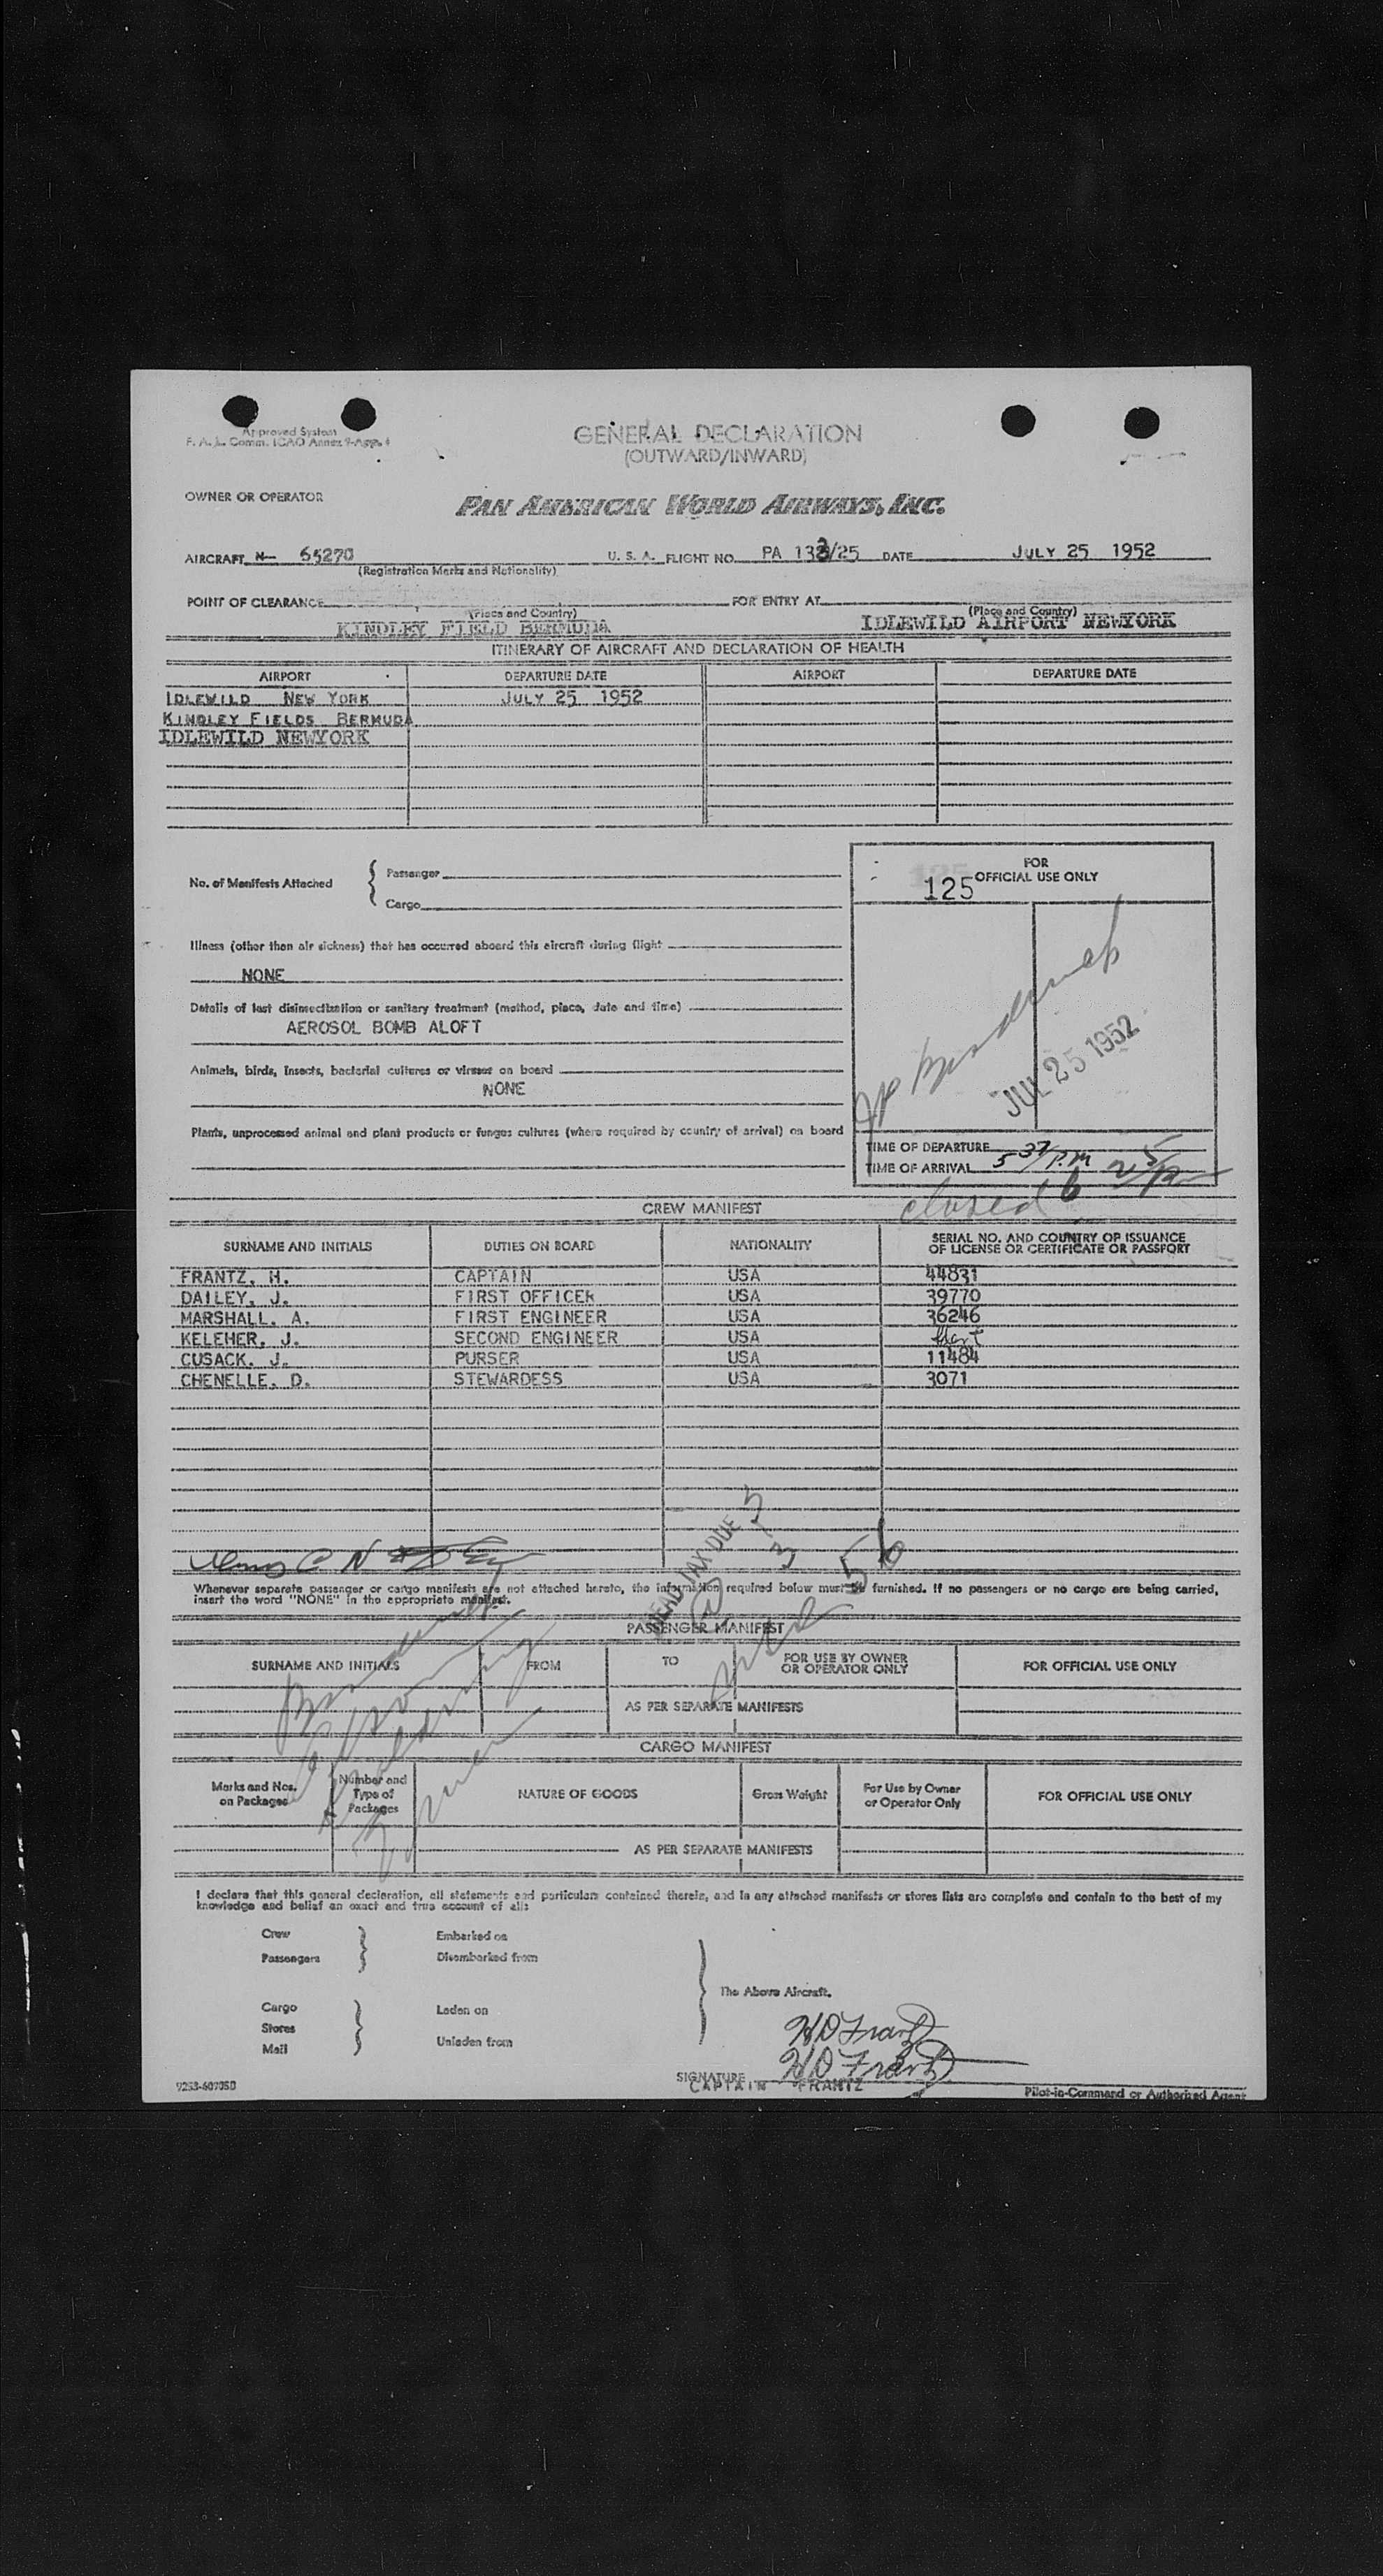 Approved System
F. A. L. Comm. ICAO Annex 9-App. 1
GENERAL DECLARATION
(OUTWARD/INWARD)
OWNER OR OPERATOR
PAN AMERICAN WORLD AIRWAYS, INC.
AIRCRAFT N- 65270 U. S. A. FLIGHT NO. PA 133/25 DATE JULY 25 1952
(Registration Marks and Nationality)
POINT OF CLEARANCE FOR ENTRY AT
(Place and Country) (Place and Country)
KINDLEY FIELD BERMUDA IDLEWILD AIRPORT NEWYORK
ITINERARY OF AIRCRAFT AND DECLARATION OF HEALTH
AIRPORT DEPARTURE DATE AIRPORT DEPARTURE DATE
IDLEWILD NEW YORK JULY 25 1952
KINDLEY FIELDS BERMUDA
IDLEWILD NEWYORK
No. of Manifests Attached { Passenger
Cargo
FOR
125 OFFICIAL USE ONLY
Illness (other than air sickness) that has occurred aboard this aircraft during flight
NONE
Details of last disinsectization or sanitary treatment (method, place, date and time)
AEROSOL BOMB ALOFT
Animals, birds, insects, bacterial cultures or viruses on board
NONE
JUL 25 1952
Plants, unprocessed animal and plant products or fungus cultures (where required by country of arrival) on board
TIME OF DEPARTURE
TIME OF ARRIVAL 5 37 P.M
closed 6 25
CREW MANIFEST
SURNAME AND INITIALS DUTIES ON BOARD NATIONALITY SERIAL NO. AND COUNTRY OF ISSUANCE
OF LICENSE OR CERTIFICATE OR PASSPORT
FRANTZ, H. CAPTAIN USA 44831
DAILEY, J. FIRST OFFICER USA 39770
MARSHALL, A. FIRST ENGINEER USA 36246
KELEHER, J. SECOND ENGINEER USA
CUSACK, J. PURSER USA 11484
CHENELLE, D. STEWARDESS USA 3071
HEAD TAX DUE
Whenever separate passenger or cargo manifests are not attached hereto, the information required below must be furnished. If no passengers or no cargo are being carried,
insert the word "NONE" in the appropriate manifest.
PASSENGER MANIFEST
SURNAME AND INITIALS FROM TO FOR USE BY OWNER
OR OPERATOR ONLY FOR OFFICIAL USE ONLY
AS PER SEPARATE MANIFESTS
CARGO MANIFEST
Marks and Nos.
on Packages Number and
Type of
Packages NATURE OF GOODS Gross Weight For Use by Owner
or Operator Only FOR OFFICIAL USE ONLY
AS PER SEPARATE MANIFESTS
I declare that this general declaration, all statements and particulars contained therein, and in any attached manifests or stores lists are complete and contain to the best of my
knowledge and belief an exact and true account of all:
Crew Embarked on
Passengers Disembarked from
The Above Aircraft.
Cargo Laden on
Stores
Mail Unladen from
HD Frantz
HD Frantz
SIGNATURE
CAPTAIN FRANTZ
9253-60705D Pilot-in-Command or Authorized Agent